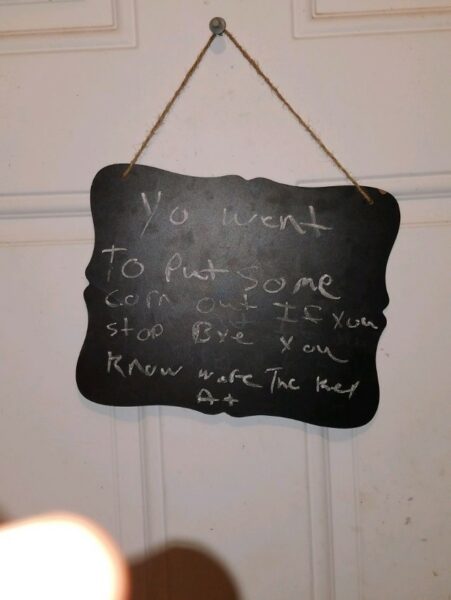 Yo went
To Put Some
corn out If you
stop Bye you
know ware The key
A+